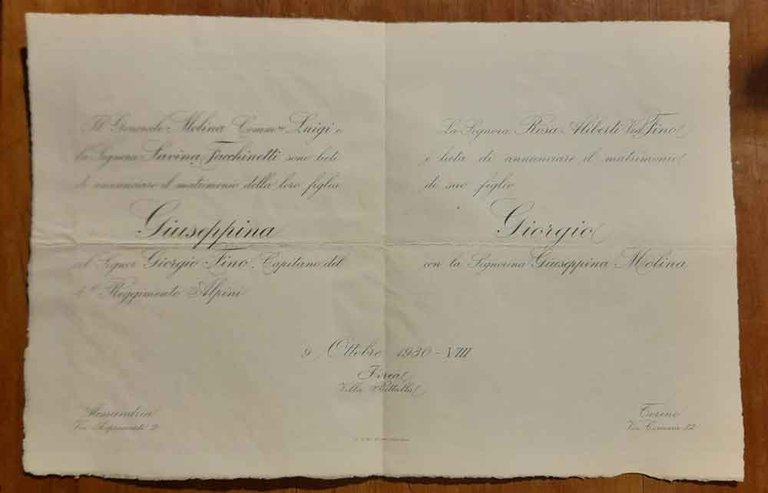 Il Generale Molina Comm.re Luigi e
la Signora Savina Facchinetti sono lieti
di annunciare il matrimonio della loro figlia
Giuseppina
col Signor Giorgio Fino, Capitano del
4° Reggimento Alpini
La Signora Rosa Aliberti Ved. Fino
è lieta di annunciare il matrimonio
di suo figlio
Giorgio
con la Signorina Giuseppina Molina
9 Ottobre 1930 - VIII
Ivrea
Villa
Alessandria
Via 2
Torino
Via 12